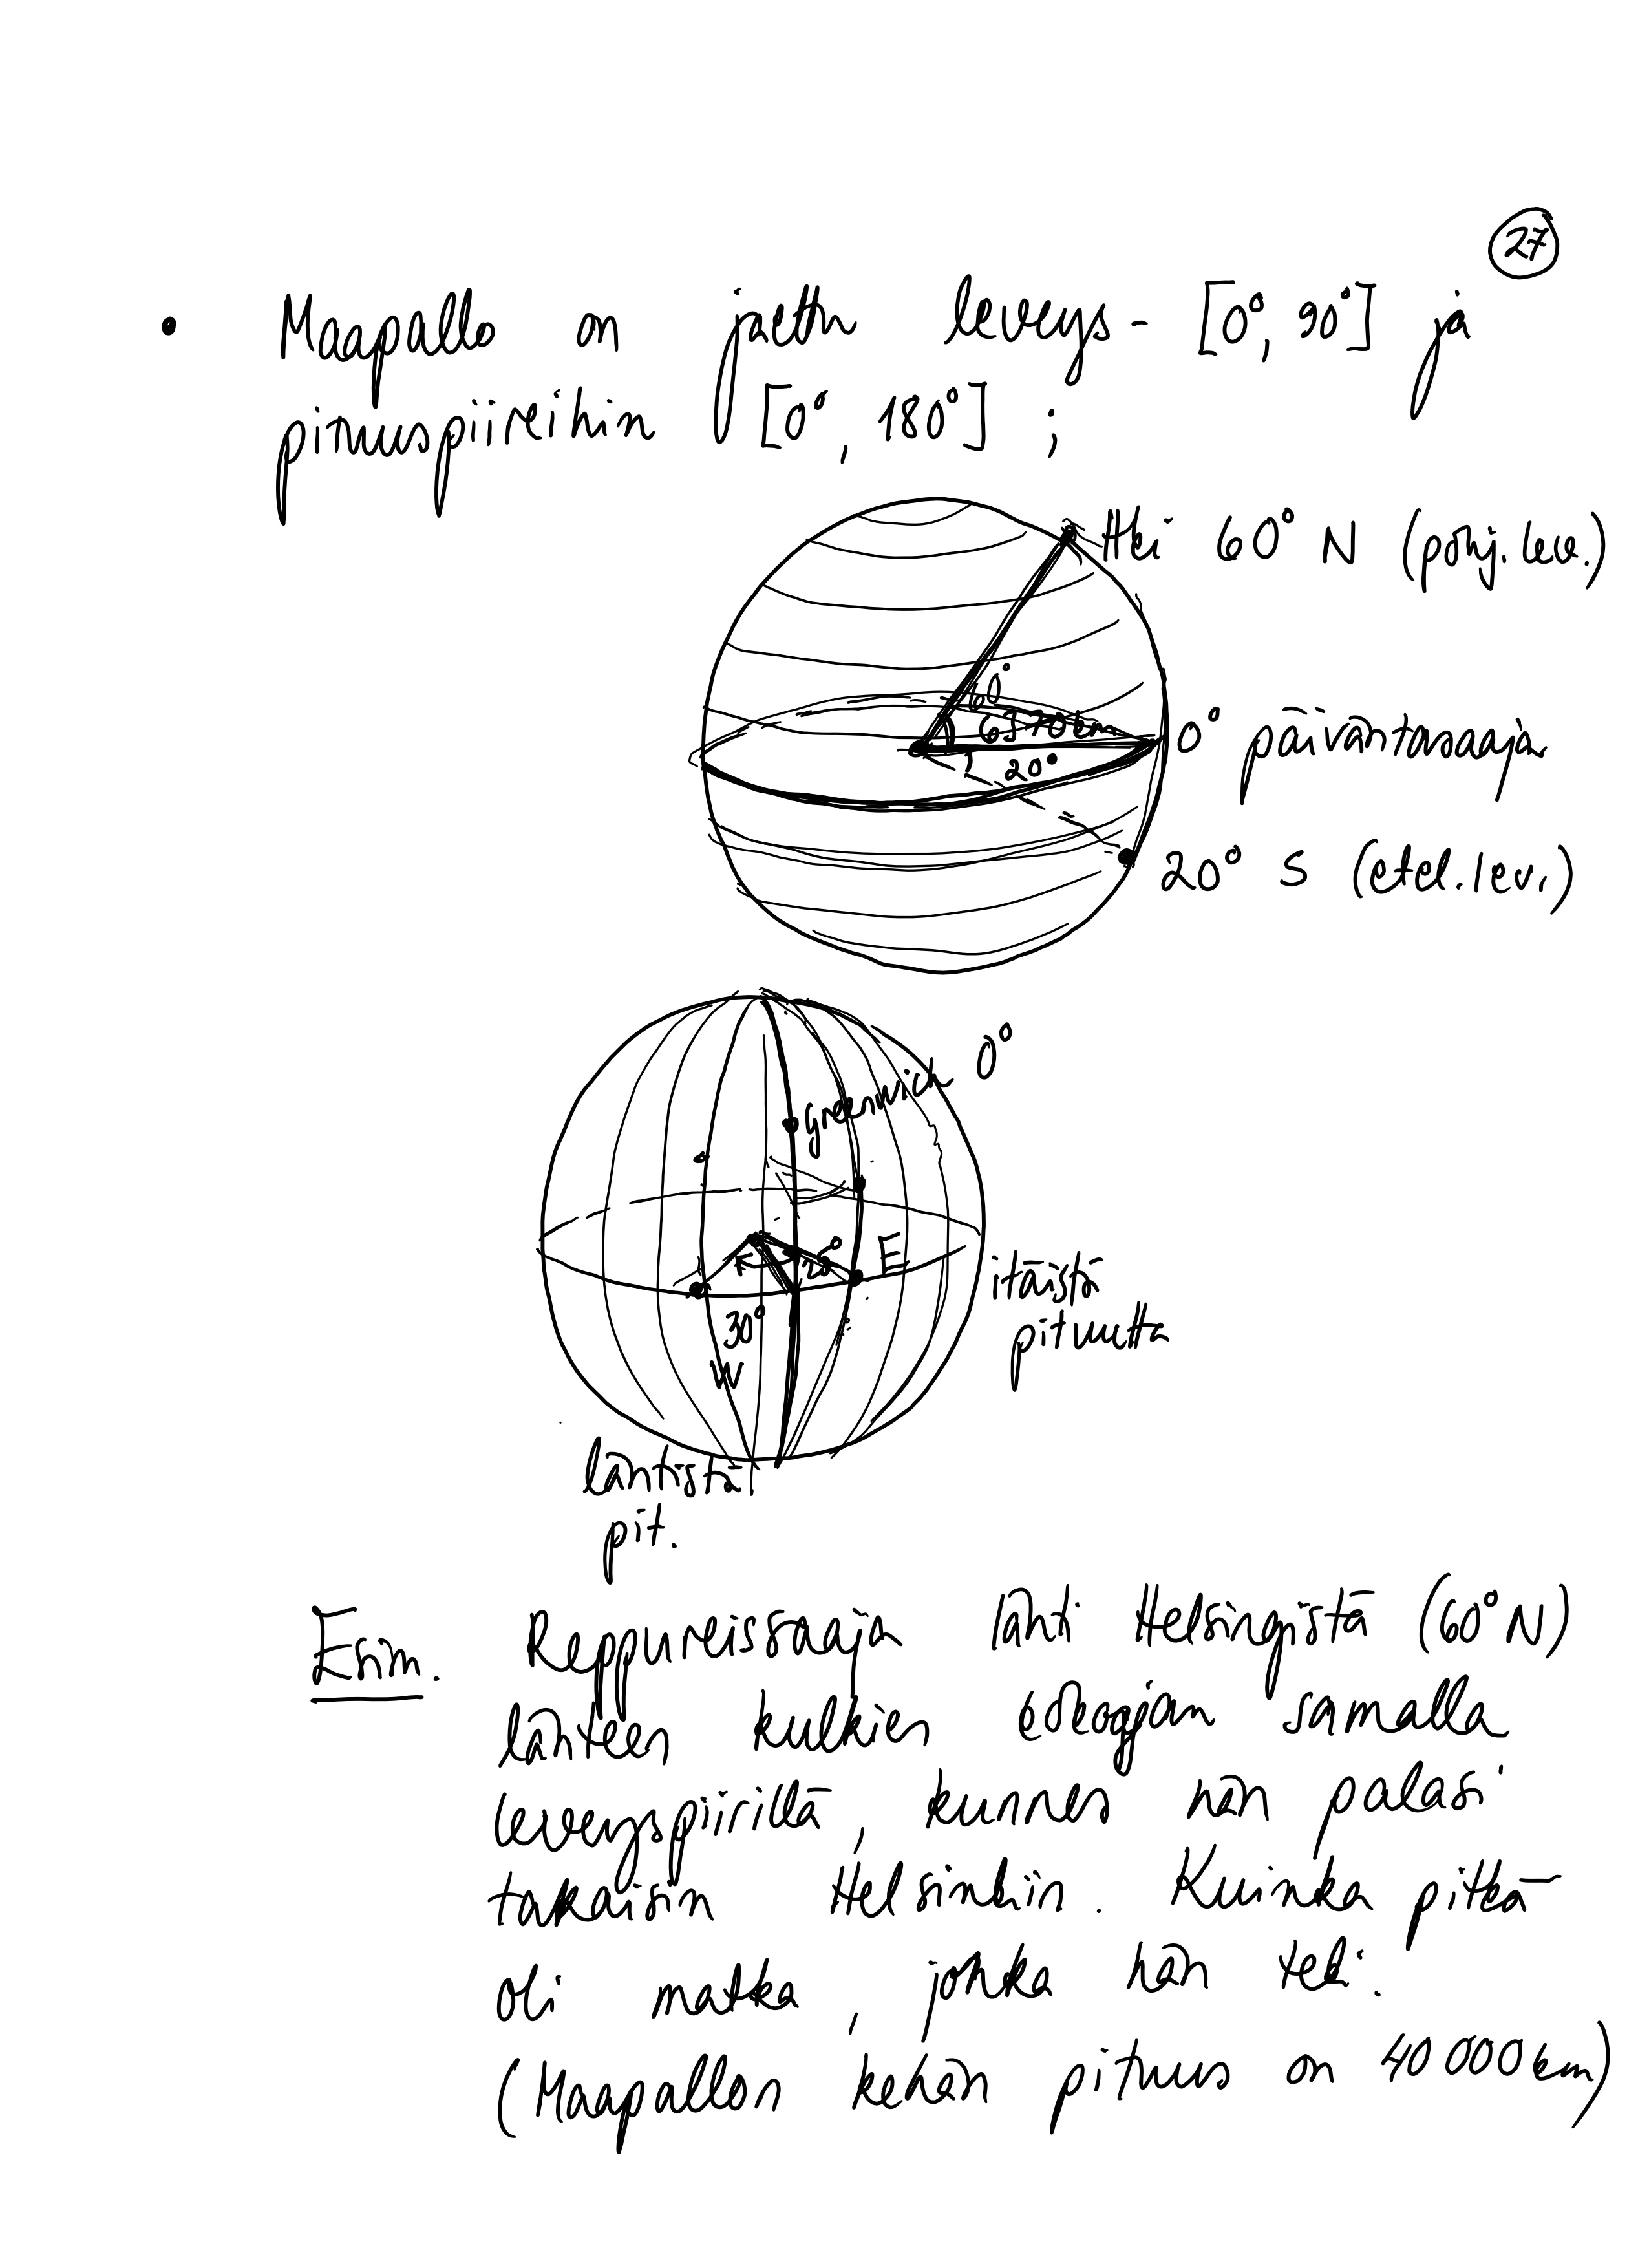 27
• Maapallo on jaettu leveys- [0°, 90°] ja
pituuspiireihin [0°, 180°] ;
Hki 60° N (pohj. lev.)
60°
6370 km
0° päiväntasaaja
20°
20° S (etel. lev.)
Greenwich 0°
25° E
itäistä
pituutta
30°
W
läntistä
pit.
Esim. Reppureissaaja lähti Helsingistä (60° N)
länteen kulkien koko ajan samalla
leveyspiirillä, kunnes hän palasi
takaisin Helsinkiin. Kuinka pitkä
oli matka, jonka hän teki.
(Maapallon kehän pituus on 40 000 km)